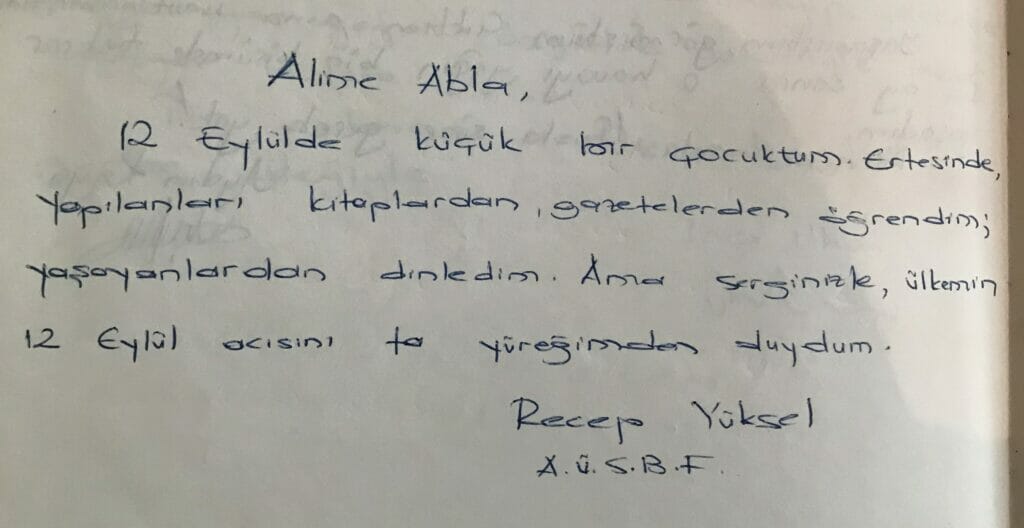 Alime Abla,
12 Eylülde küçük bir çocuktum. Ertesinde,
yapılanları kitaplardan, gazetelerden öğrendim;
yaşayanlardan dinledim. Ama serginizle, ülkemin
12 Eylül acısını ta yüreğimden duydum.
Recep Yüksel
A.Ü.S.B.F.